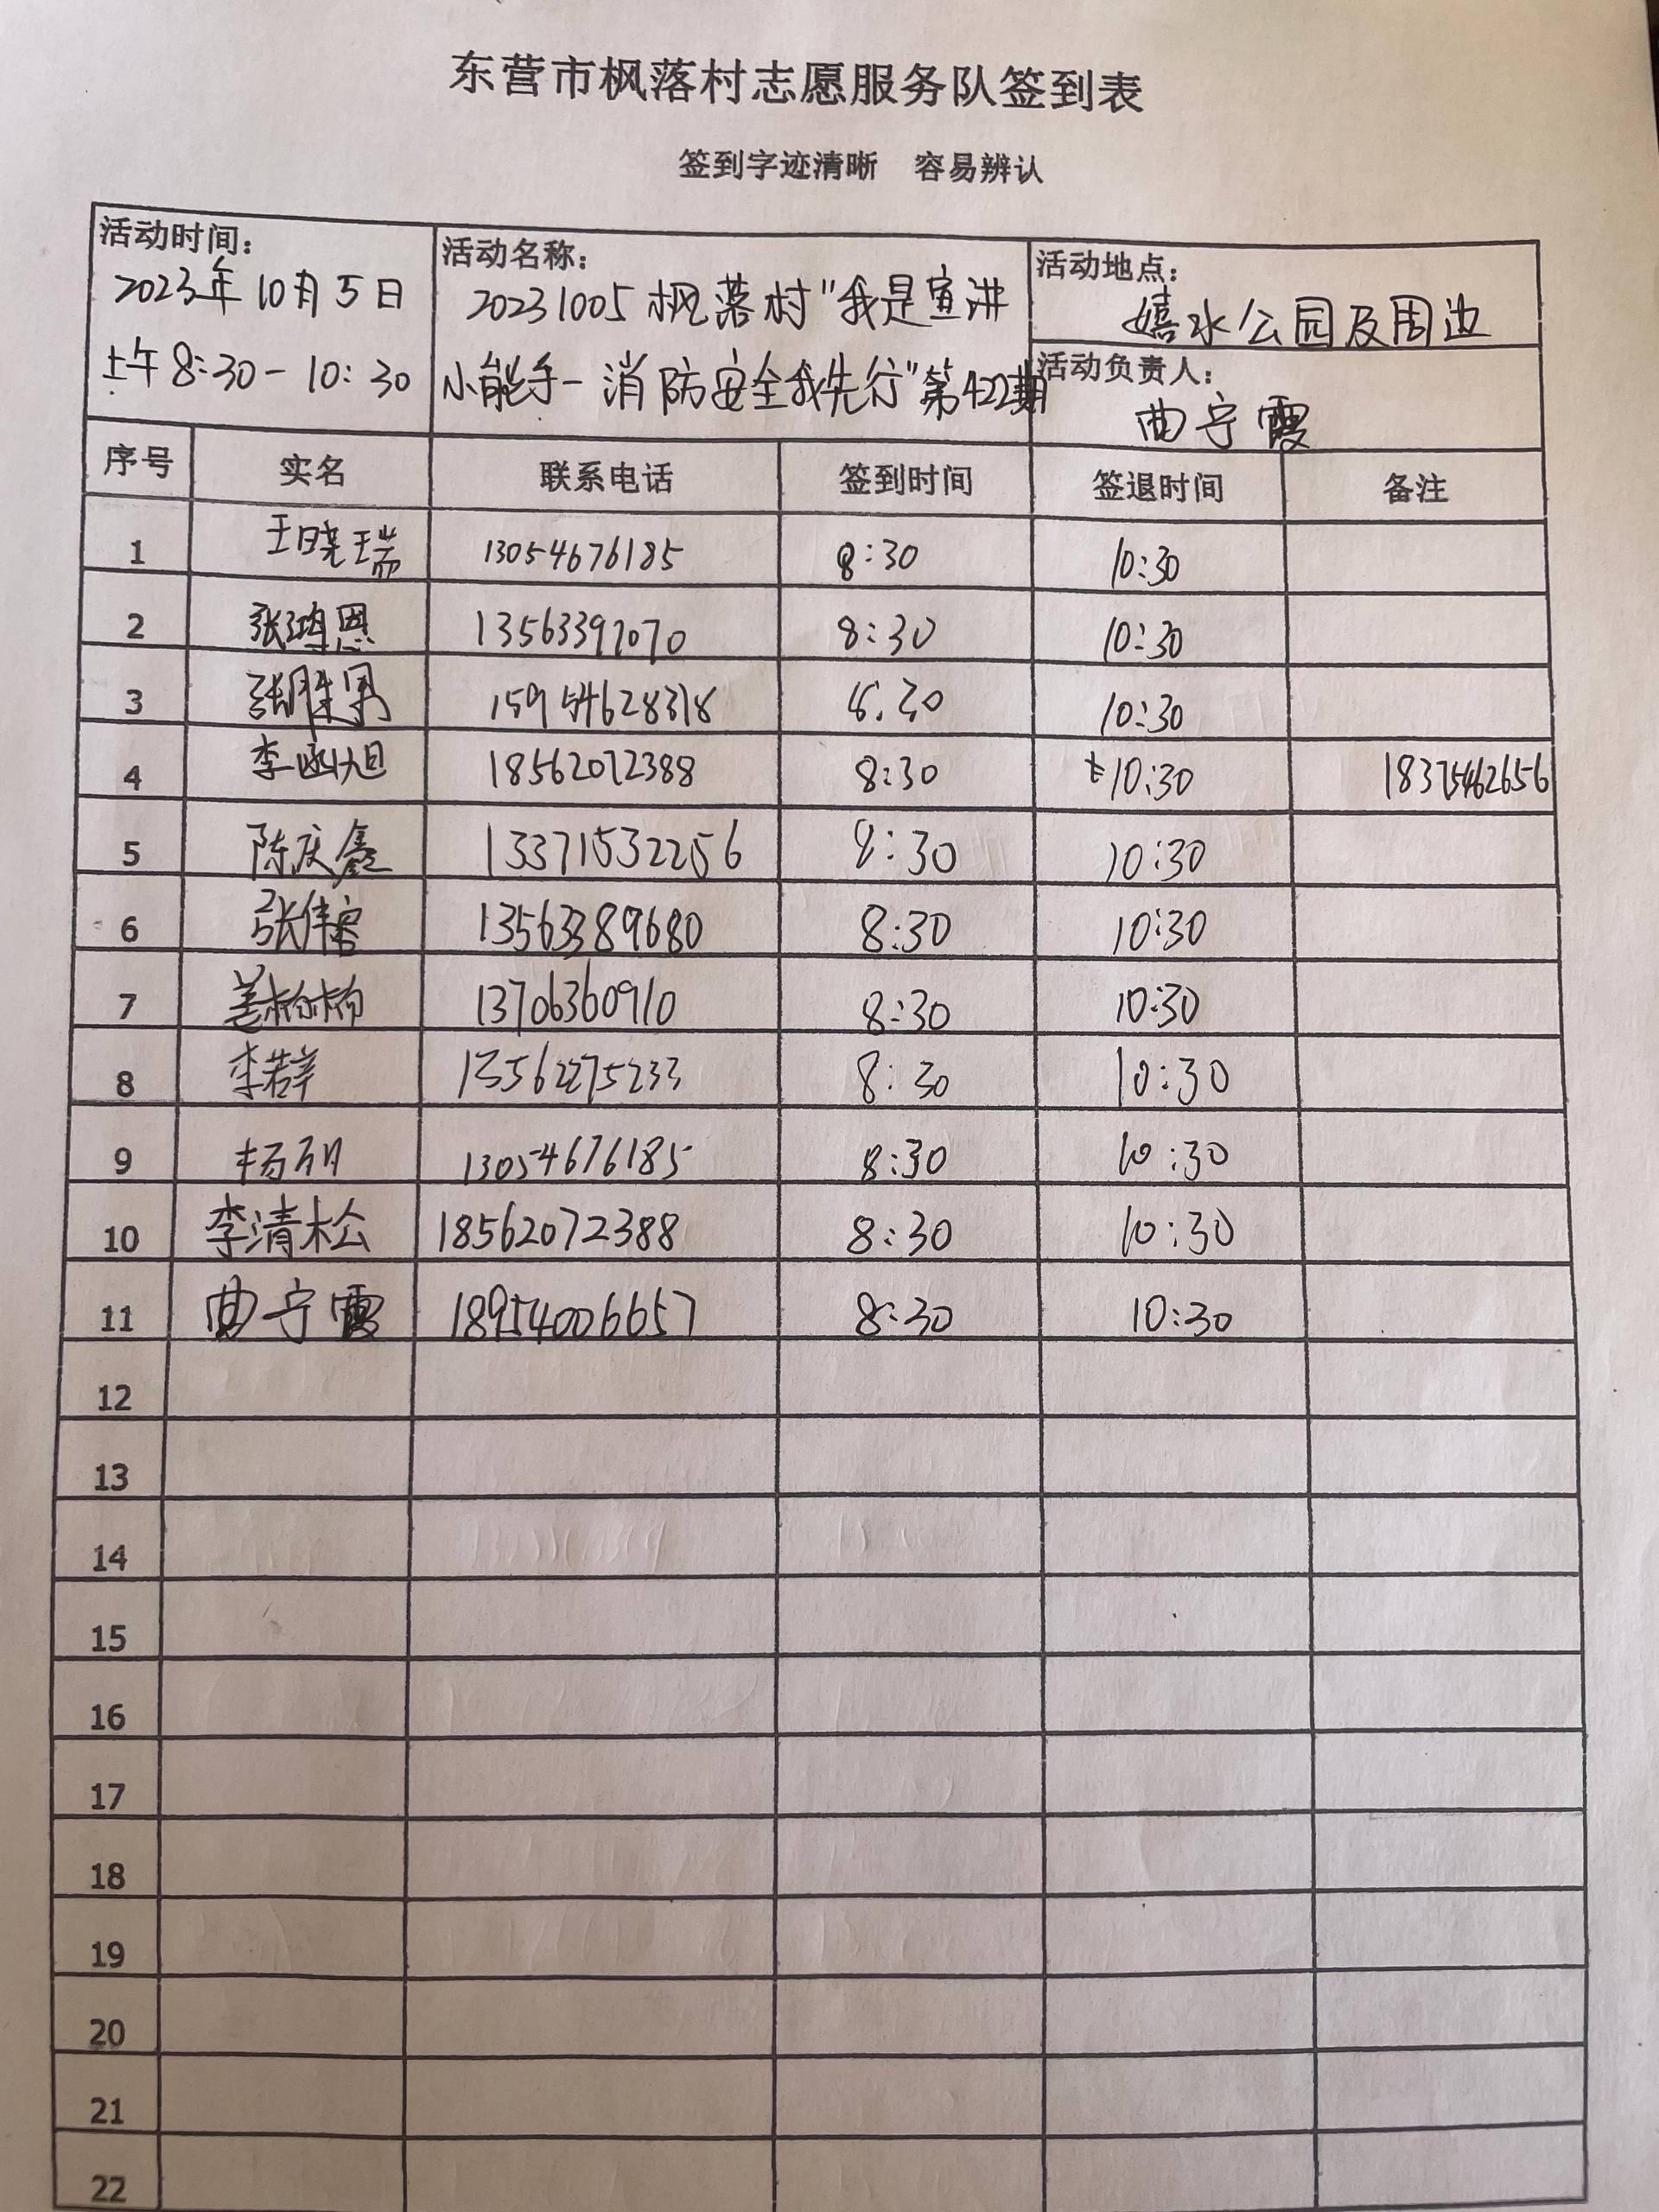 东营市枫落村志愿服务队签到表
签到字迹清晰 容易辨认
活动时间：
2023年10月5日
上午8:30-10:30
活动名称：
20231005枫落村"我是宣讲
小能手-消防安全我先行"第422期
活动地点：
嬉水公园及周边
活动负责人：
曲宁霞
序号 实名 联系电话 签到时间 签退时间 备注
1 王晓瑞 13054676185 8:30 10:30
2 张鸿恩 13563397070 8:30 10:30
3 张胜男 15954628318 10:30
4 李函旭 18562072388 8:30 10:30 18375462656
5 陈庆鑫 13371532256 8:30 10:30
6 张伟睿 13563389680 8:30 10:30
7 姜柏杨 13706360910 8:30 10:30
8 李若羊 13562275233 8:30 10:30
9 杨 13054676185 8:30 10:30
10 李清松 18562072388 8:30 10:30
11 曲宁霞 18954006657 8:30 10:30
12
13
14
15
16
17
18
19
20
21
22